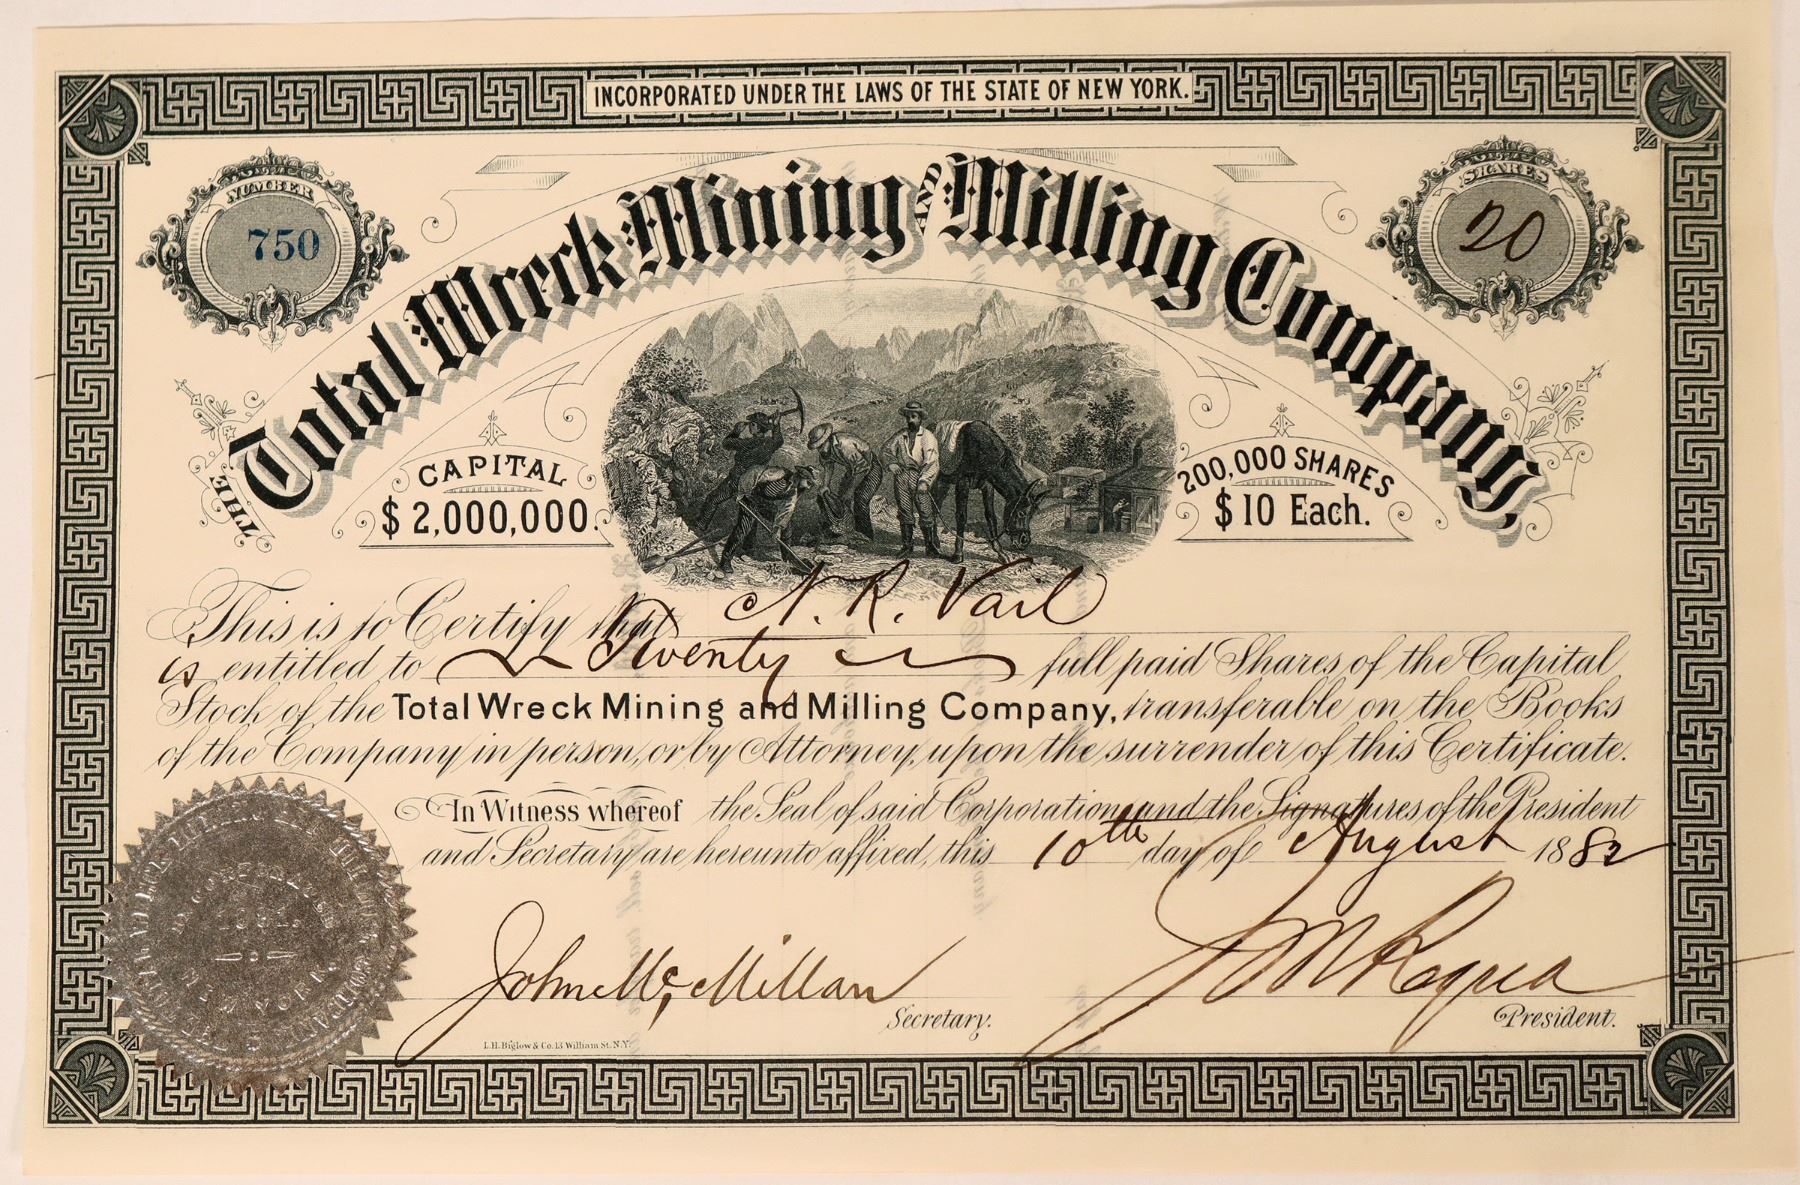 INCORPORATED UNDER THE LAWS OF THE STATE OF NEW YORK.
NUMBER
750
SHARES
20
THE Total Wreck Mining AND Milling Company,
CAPITAL
$ 2,000,000.
200,000 SHARES
$ 10 Each.
This is to Certify that N. R. Vail
is entitled to Twenty full paid Shares of the Capital
Stock of the Total Wreck Mining and Milling Company, transferable on the Books
of the Company in person, or by Attorney, upon the surrender of this Certificate.
In Witness whereof the Seal of said Corporation and the Signatures of the President
and Secretary are hereunto affixed, this 10th day of August 1882
John McMillan
Secretary.
President.
L.H. Biglow & Co. 13 William St. N.Y.
INCORPORATED
1881.
NEW YORK